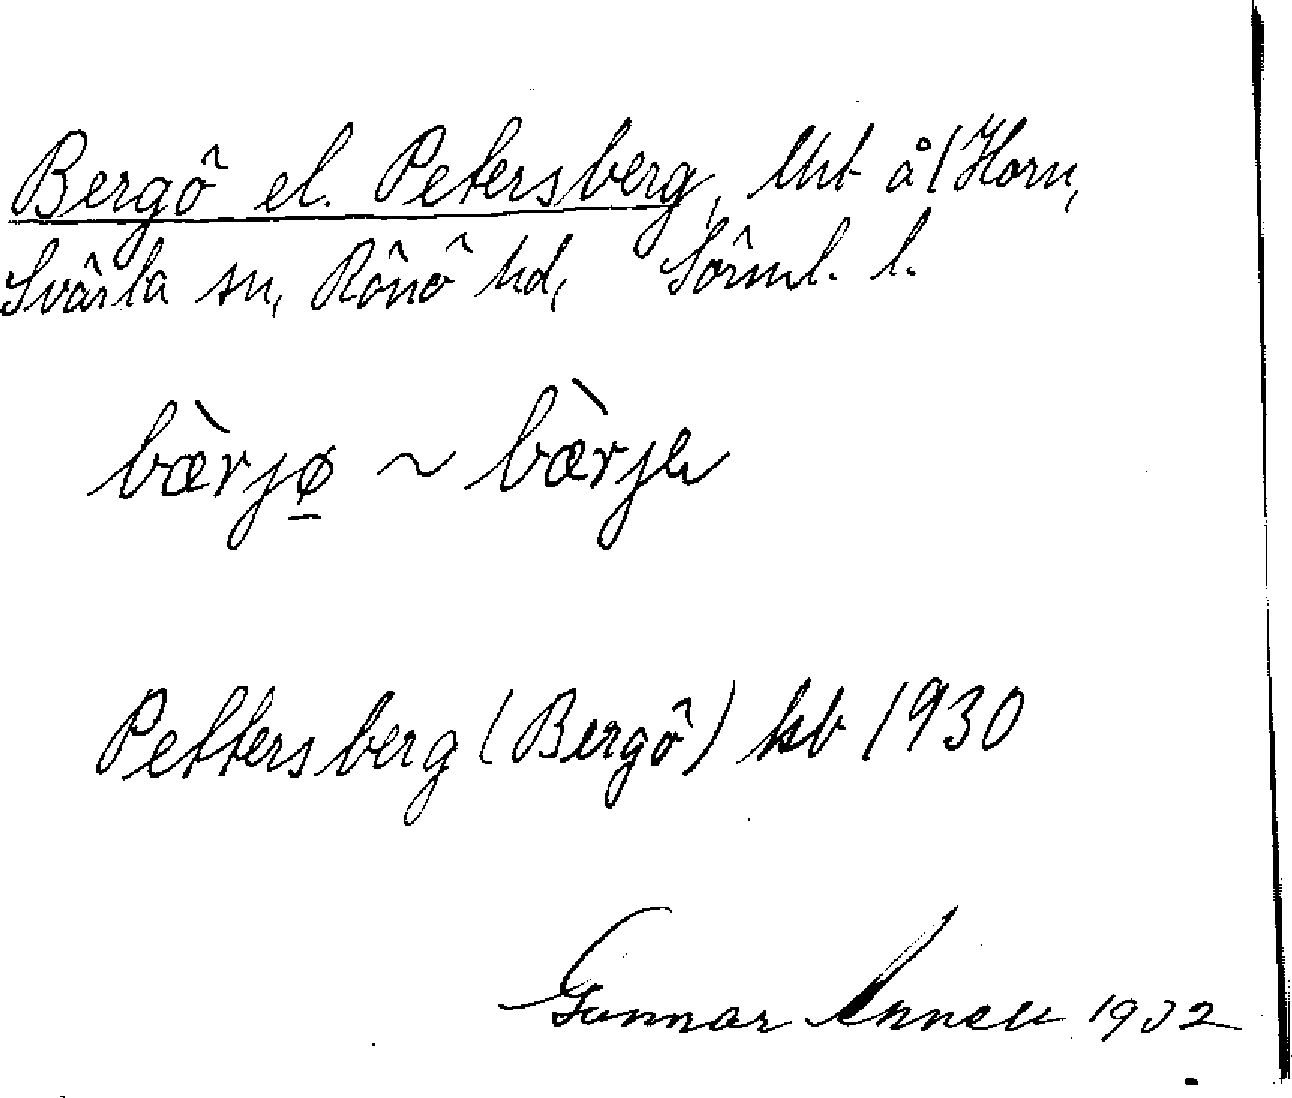 Bergö el. Petersberg, lht å/Horn,
Svärta sn, Rönö hd, Sörml. l.
bæ̀rjø̱ ~ bæ̀rje
Pettersberg (Bergö) kb 1930
Gunnar 1932